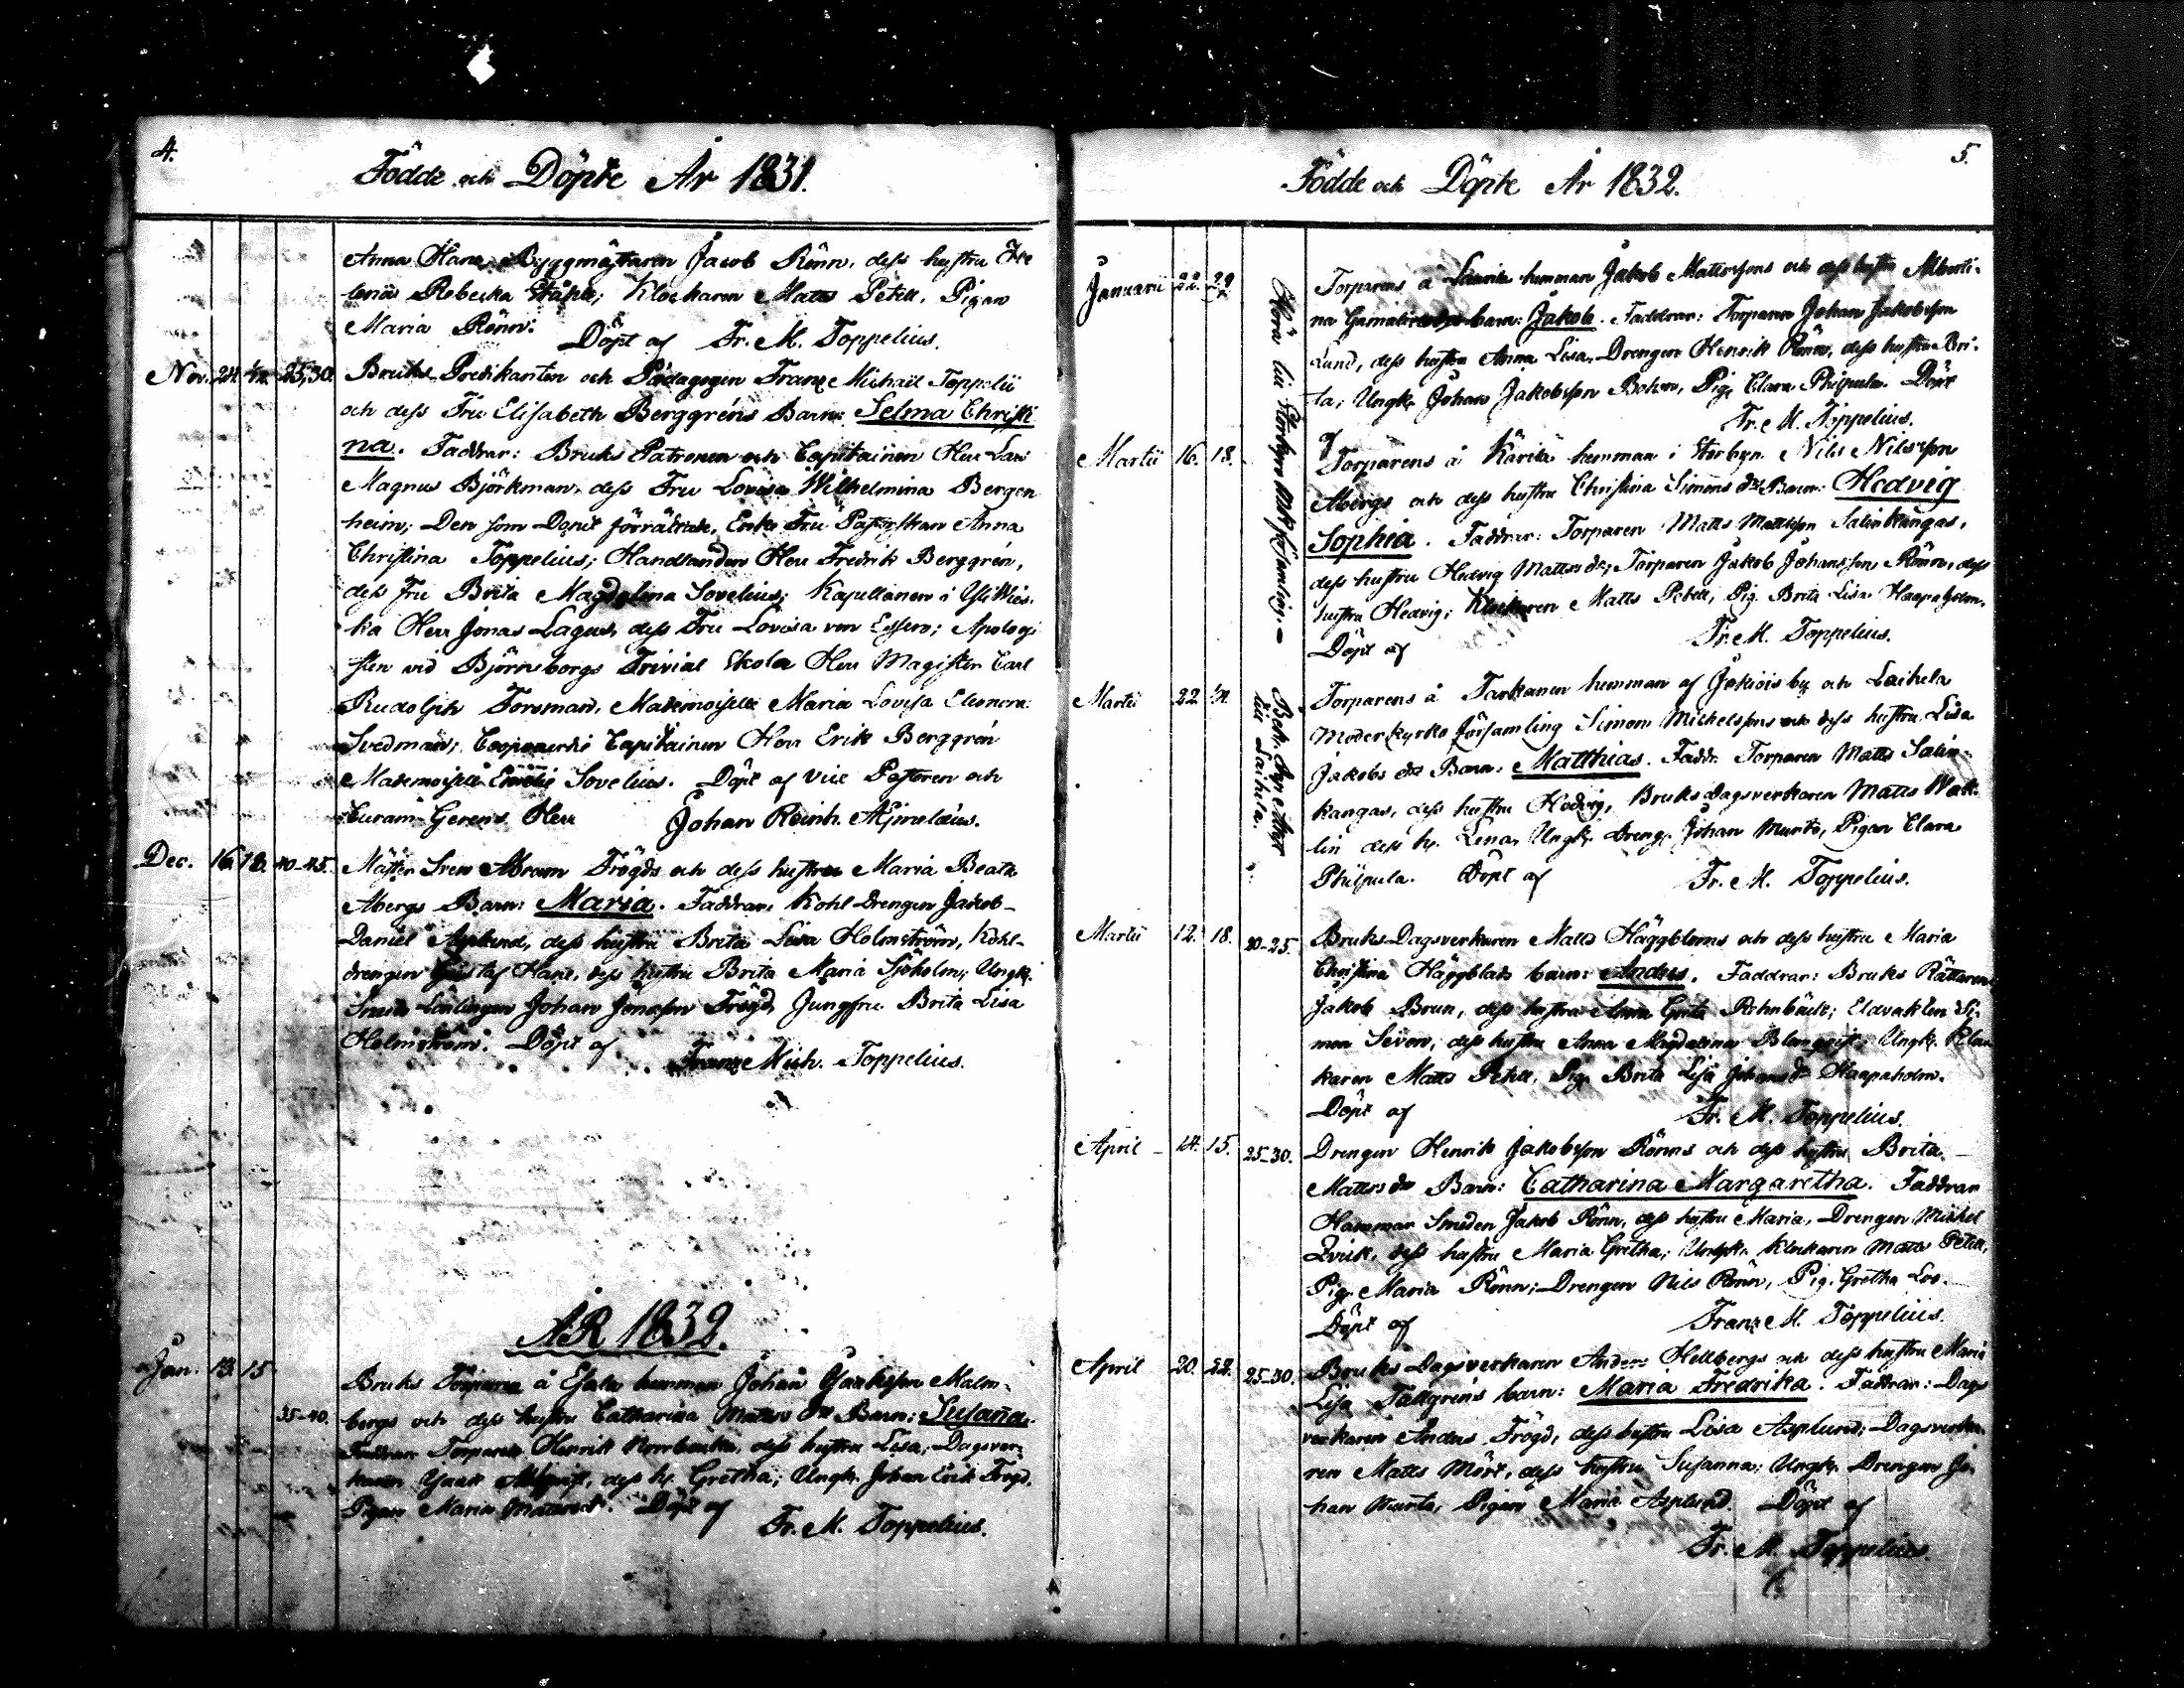 4.
Födde och Döpte År 1831.
Anna Hane Byggmästaren Jacob Rönn, dess hustru
Rebecka Klockaren Matts Petell, Pigan
Maria Rönn.
Döpt af Fr. M. Toppelius.
Nov. 24. 25,30. Bruks Predikanten och Pädagogen Franz Michaël Toppelii
och dess Fru Elisabeth Berggréns Barn: Selma Christi
na. Faddrar: Bruks Patronen och Capitainen Herr Lars
Magnus Björkman, dess Fru Lovisa Wilhelmina Bergen
heim; Den som Donit förrättade, Enke Fru Pastorskan Anna
Christina Toppelius; Handlanden Herr Fredrik Berggrén,
dess Fru Brita Magdalena Sovelius; Kapellanen i
ka Herr Jonas Lagus, dess Fru Lovisa von Essen; Apologi
sten vid Björneborgs Trivial Skola Herr Magister Carl
Rudolph Forsman, Mademoiselle Maria Lovisa Eleonora
Svedman; Capitainen Herr Erik Berggrén
Mademoiselle Emelie Sovelius. Döpt af Vice Pastoren och
Curam Gerens Herr Johan Reinh.
Dec. 16. 18. 40-45. Mäster Sven Abram Frögds och dess hustru Maria Beata
Abergs Barn: Maria. Faddrar: Kohl Drengen Jakob
Daniel Asplund, dess hustru Brita Lisa Holmström, Kohl-
drengen Gustaf Hane, dess hustru Brita Maria Sjöholm; Ungk.
Smeds Lärlingen Johan Jonasson Frögd, Jungfru Brita Lisa
Holmström. Döpt af
Franz Mich. Toppelius.
ÅR 1832.
Jan. 13. 15.
Bruks Torparen å hemman Johan Malm-
35-40. bergs och dess hustru Catharina Matts dtr Barn: Susaña.
Faddrar Torparen Henrik dess hustru Lisa, Dagsver-
karen dess h. Gretha; Ungk. Johan Erik Frögd,
Pigan Maria Döpt af
Fr. M. Toppelius.
5.
Födde och Döpte År 1832.
Januarii 22. 29.
Torparens å hemman Jakob Mattssons och dess hustru Alberti-
na barn: Jakob. Faddrar: Torparen Johan Jakobsson
Lund, dess hustru Anna Lisa, Drengen Henrik Rönn, dess hustru Bri-
ta; Ungk. Johan Jakobsson Pig. Clara Phipula. Döpt
af Fr. M. Toppelius.
Martii 16. 18.
Torparens å Käritä hemman i Storbyn Nils Nilsson
Abergs och dess hustru Christina Simons dtr Barn: Hedvig
Sophia. Faddrar: Torparen Matts Mattsson Salinkangas,
dess hustru Hedvig Matts dr; Torparen Jakob Johansson Rönn, dess
hustru Hedvig; Klockaren Matts Petell, Pig. Brita Lisa Haapaholm.
Döpt af Fr. M. Toppelius.
Martii 22.
till Laihela.
Torparens å Tarkanen hemman af Jokiois by och Laihela
Moderkyrko församling Simon Michelssons och dess hustru Lisa
Jakobs dtr Barn: Matthias. Fadd. Torparen Matts Salin-
kangas, dess hustru Hedvig, Bruks dagsverkaren Matts Wak-
lin dess h. Lena, Ungk. Dreng. Johan Munto, Pigan Clara
Phipula. Döpt af Fr. M. Toppelius.
Martii 12. 18. 20-25.
Bruks-Dagsverkaren Matts Häggbloms och dess hustru Maria
Christina Häggblads barn: Anders. Faddrar: Bruks Rättaren
Jakob Brun, dess hustru Anna Greta Eldvakten Si-
mon Seven, dess hustru Anna Magdalena Blomqvist; Ungk. Kloc
karen Matts Petell, Pig. Brita Lisa Johans dr Haapaholm.
Döpt af Fr. M. Toppelius.
April 14. 15. 25-30.
Drengen Henrik Jakobsson Rönns och dess hustru Brita
Matts dtr Barn: Catharina Margaretha. Faddrar
Hammar Smeden Jakob Rönn, dess hustru Maria, Drengen Michel
Qvick, dess hustru Maria Gretha; Ungk. Klockaren Matts Petell,
Pig. Maria Rönn; Drengen Nils Rönn, Pig. Gretha Loo.
Döpt af Franz M. Toppelius.
April 20. 22. 25-30.
Bruks Dagsverkaren Anders Hellbergs och dess hustru Maria
Lisa Tallgréns barn: Maria Fredrika. Faddrar: Dags
verkaren Anders Frögd, dess hustru Lisa Asplund; Dagsverka-
ren Matts Mört, dess hustru Susanna; Ungk. Drengen Jo-
han Munto, Pigan Maria Asplund. Döpt af
Fr. M. Toppelius.